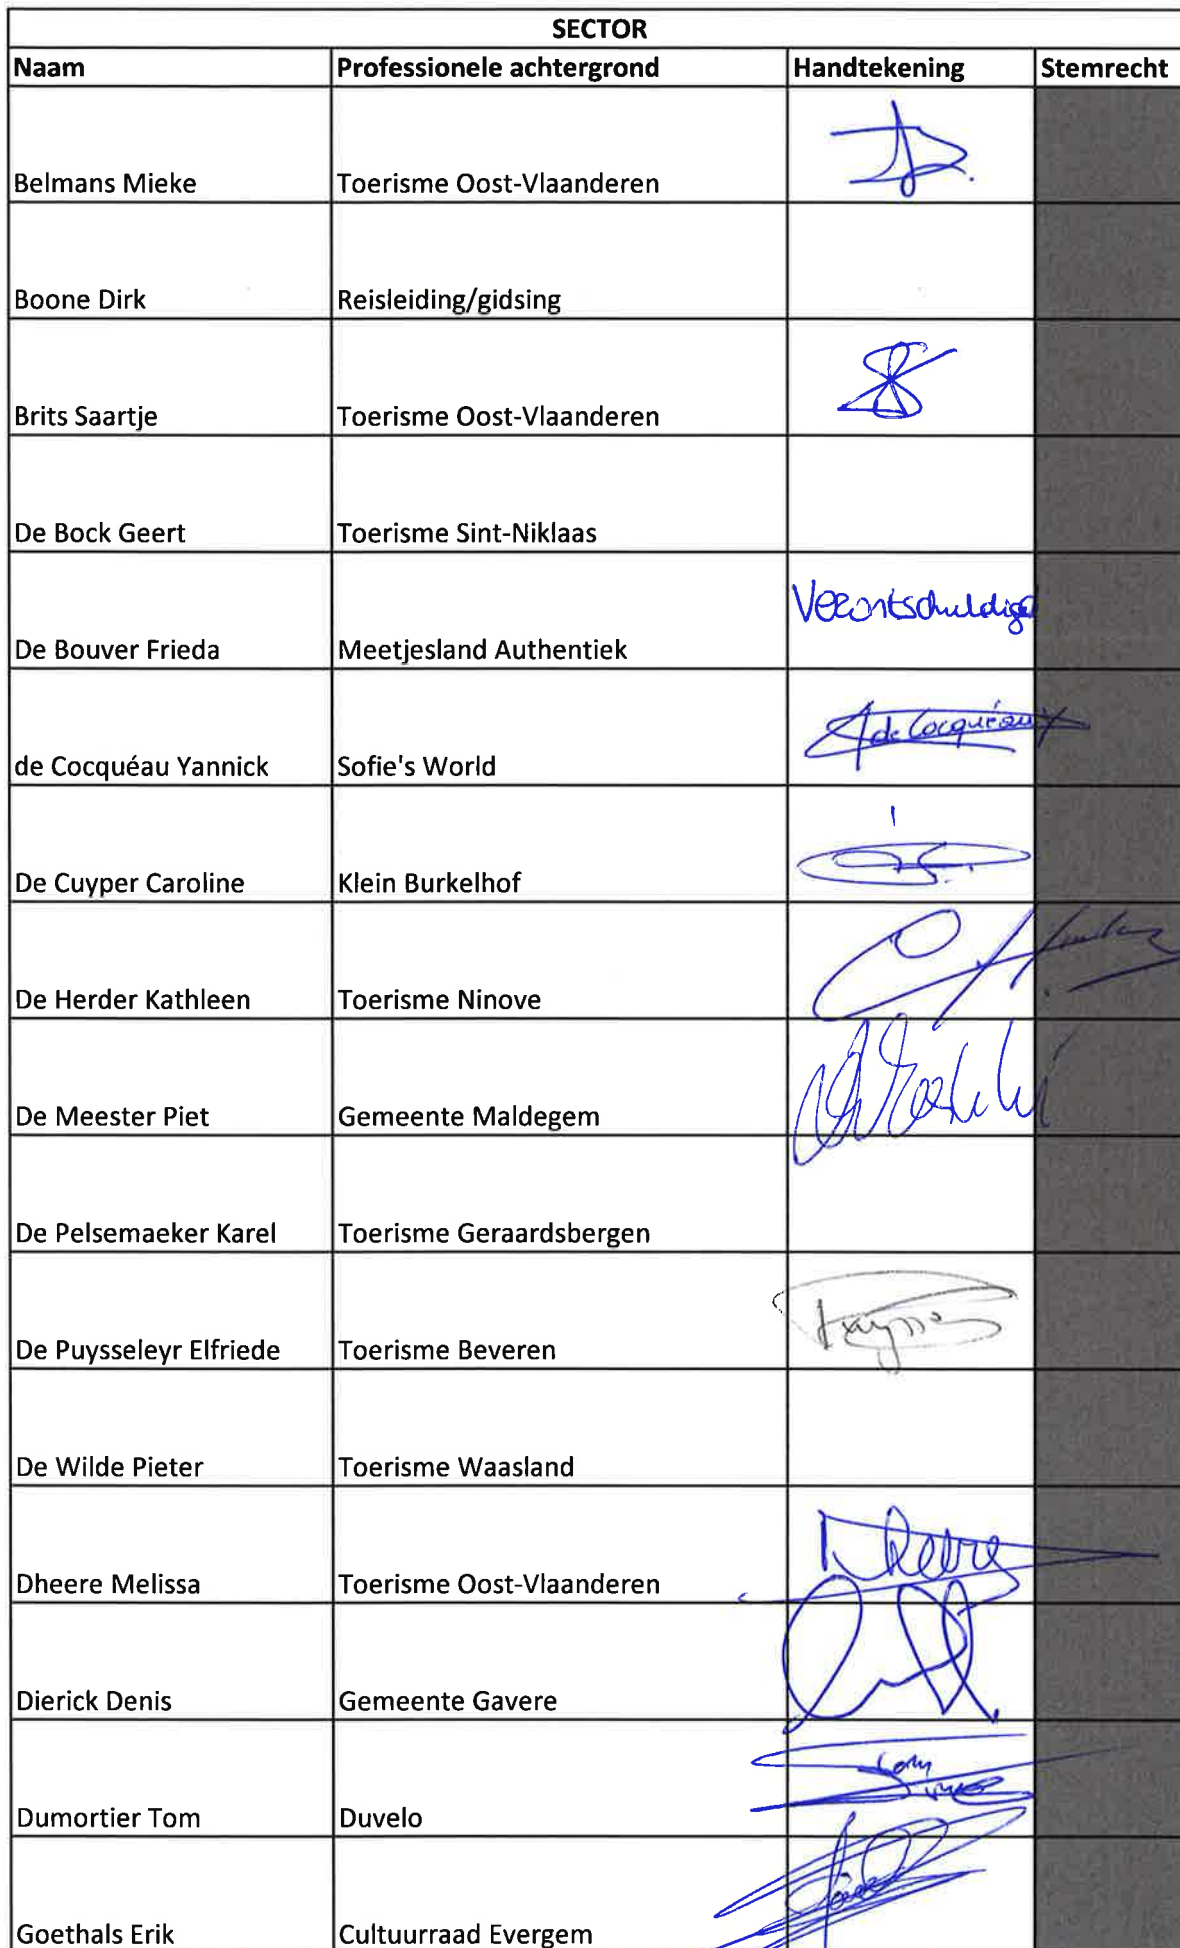 SECTOR
Naam Professionele achtergrond Handtekening Stemrecht
Belmans Mieke Toerisme Oost-Vlaanderen
Boone Dirk Reisleiding/gidsing
Brits Saartje Toerisme Oost-Vlaanderen
De Bock Geert Toerisme Sint-Niklaas
Verontschuldigd
De Bouver Frieda Meetjesland Authentiek
de Cocquéau
de Cocquéau Yannick Sofie's World
De Cuyper Caroline Klein Burkelhof
De Herder Kathleen Toerisme Ninove
De Meester Piet Gemeente Maldegem
De Pelsemaeker Karel Toerisme Geraardsbergen
De Puysseleyr Elfriede Toerisme Beveren
De Wilde Pieter Toerisme Waasland
Dheere
Dheere Melissa Toerisme Oost-Vlaanderen
Dierick Denis Gemeente Gavere
Tom
Dumortier Tom Duvelo
Goethals Erik Cultuurraad Evergem